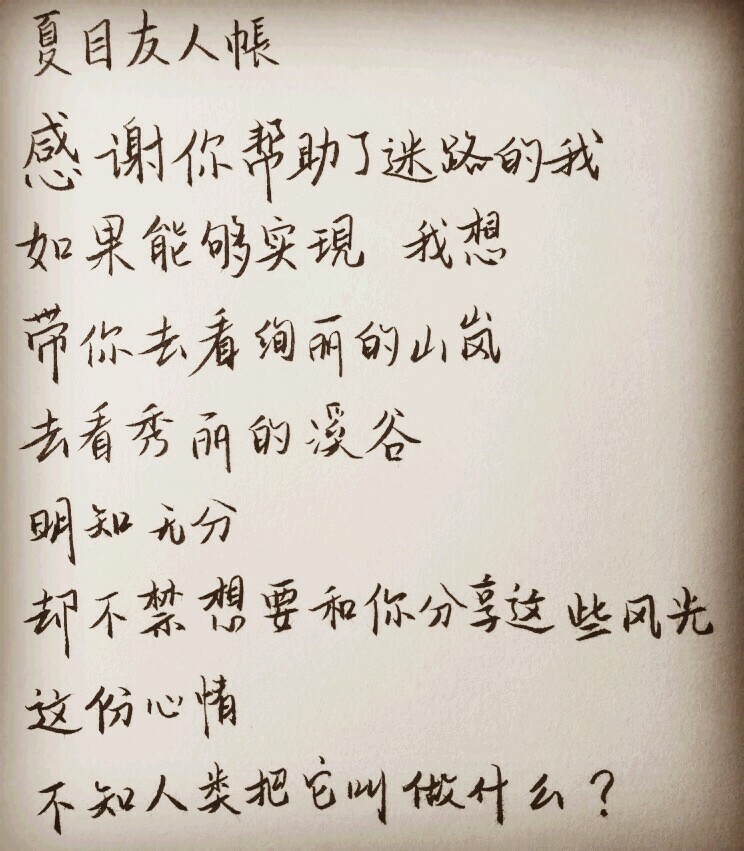 夏目友人帳
感谢你帮助了迷路的我
如果能够实現 我想
带你去看绚丽的山岚
去看秀丽的溪谷
明知无分
却不禁想要和你分享这些风光
这份心情
不知人类把它叫做什么?